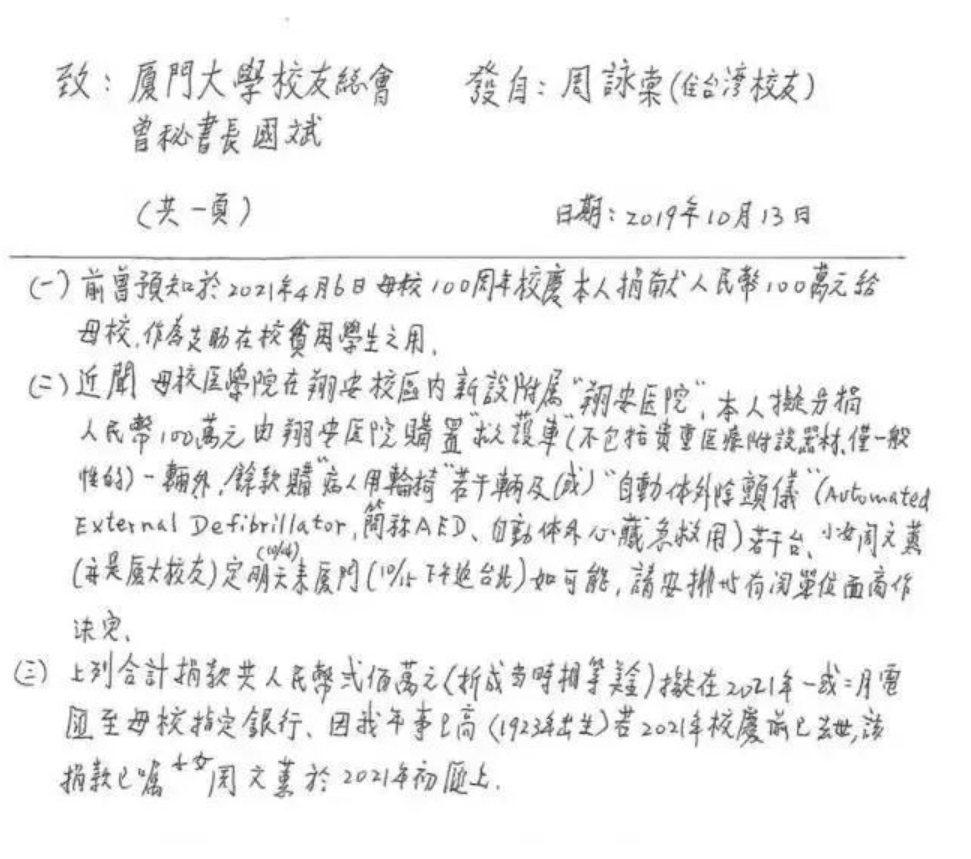 致：廈門大學校友總會 發自：周詠棠(住台灣校友)
曾秘書長國斌
(共一頁) 日期：2019年10月13日
(一)前曾預知於2021年4月6日母校100周年校慶本人捐献人民幣100萬元給
母校,作為支助在校貧困學生之用.
(二)近聞母校医學院在翔安校區内新設附属"翔安医院",本人擬另捐
人民幣100萬元由翔安医院購置"救護車"(不包括貴重医療附設器材,僅一般
性的)一輛外,餘款購"病人用輪椅"若干輛及(或)"自動体外除顫儀"(Automated
External Defibrillator,簡称AED、自動体外心臟急救用)若干台、小女周文蕙
(亦是廈大校友)定明天(10/14)来廈門(10/15下午返台北)如可能,請安排與有関單位面商作
決定.
(三)上列合計捐款共人民幣弍佰萬元(折成当時相等美金)擬在2021年一或二月電
匯至母校指定銀行、因我年事已高(1923年出生)若2021年校慶前已去世,該
捐款已嘱小女周文蕙於2021年初匯上.